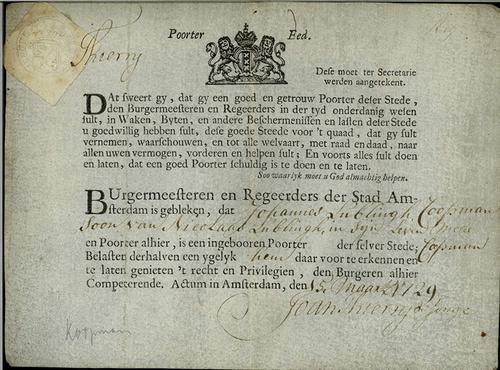 Thierry
Poorter Eed.
Dese moet ter Secretarie
werden aangetekent.
DAt sweert gy, dat gy een goed en getrouw Poorter deser Stede,
den Burgermeesteren en Regeerders in der tyd onderdanig wesen
sult, in Waken, Byten, en andere Beschermenissen en lasten deser Stede
u goedwillig hebben sult, dese goede Steede voor 't quaad, dat gy sult
vernemen, waarschouwen, en tot alle welvaart, met raad en daad, naar
allen uwen vermogen, vorderen en helpen sult; En voorts alles sult doen
en laten, dat een goed Poorter schuldig is te doen en te laten.
Soo waarlyk moet u God almachtig helpen.
BUrgermeesteren en Regeerders der Stad Am-
sterdam is gebleken, dat Johannes Lublingh Coopman
Soon van Nicolaas Lublingh, in syn Leven
en Poorter alhier, is een ingebooren Poorter der selver Stede;
Belasten derhalven een ygelyk hem daar voor te erkennen en
te laten genieten 't recht en Privilegien, den Burgeren alhier
Competerende. Actum in Amsterdam, den 15 Maart 1729
Joan Thierry
Koopman